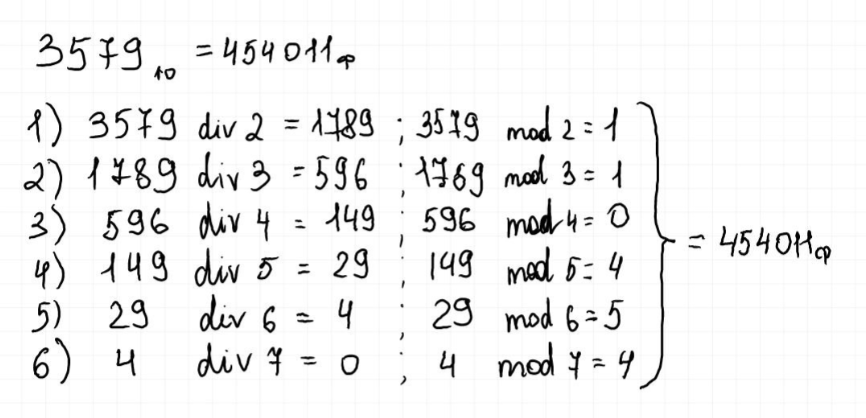 3579₁₀ = 454011ф
1) 3579 div 2 = 1789 ; 3579 mod 2 = 1
2) 1789 div 3 = 596 ; 1789 mod 3 = 1
3) 596 div 4 = 149 ; 596 mod 4 = 0
4) 149 div 5 = 29 ; 149 mod 5 = 4
5) 29 div 6 = 4 ; 29 mod 6 = 5
6) 4 div 7 = 0 ; 4 mod 7 = 4
= 454011ф